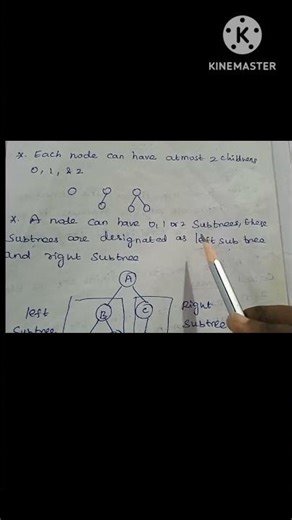 K
KINEMASTER
x. Each node can have atmost 2 childrens
0, 1, & 2
x. A node can have 0, 1 or 2 Subtrees, these
Subtrees are designated as left sub tree
and right Subtree
A
left
Subtree
B
C
Right
Subtree